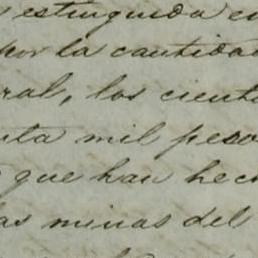 estinguida en
por la cantidad
ral, los ciento
nta mil pesos
que han hech
las minas del